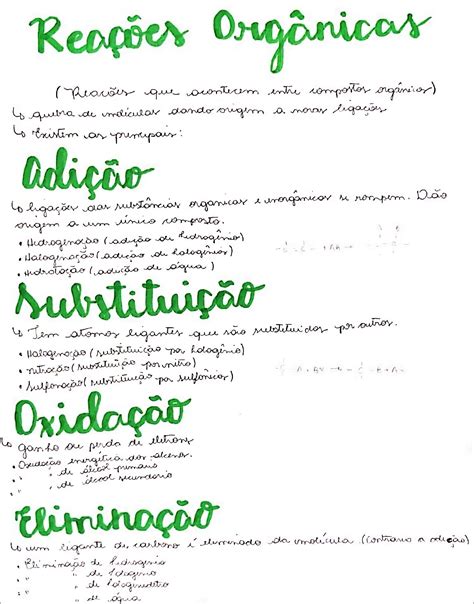 Reações Orgânicas
(Reações que acontecem entre compostos orgânicos)
↳ quebra de moléculas dando origem a novas ligações
↳ Existem as principais:
Adição
↳ ligações das substâncias orgânicas e inorgânicas se rompem. Dão
origem a um único composto.
• Hidrogenação (adição de hidrogênio)
• Halogenação (adição de halogênios)
• Hidratação (adição de água)
Substituição
↳ Tem atomos ligantes que são substituidos por outros.
• Halogenação (substituição por halogênio)
• nitração (substituição por nitro)
• Sulfonação (substituição por sulfônicos)
Oxidação
↳ Ganho ou perda de elétrons
• Oxidação energética dos alcenos.
• " " de álcool primário
• " " de álcool secundário
Eliminação
↳ um ligante de carbono é eliminado da molécula (contrario a adição)
• Eliminação de hidrogênio
• " " de halogênio
• " " de
• " " de água